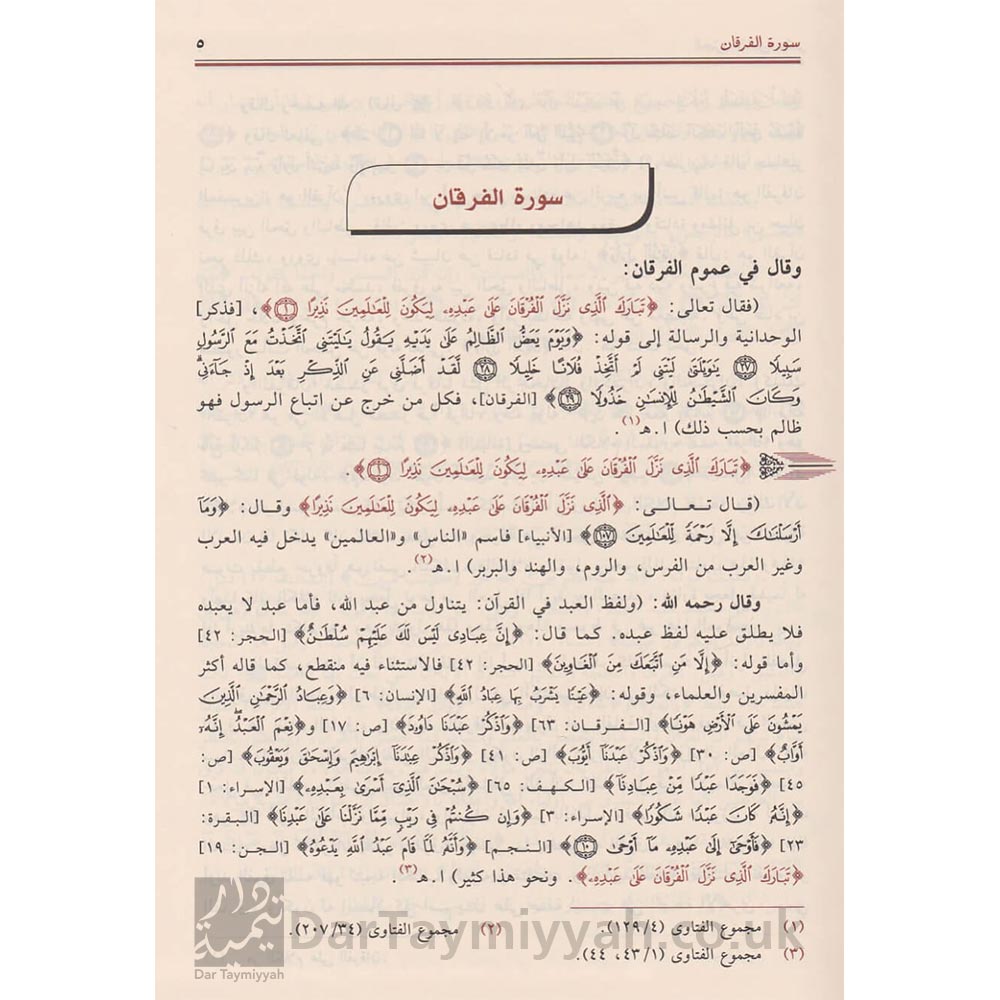 سورة الفرقان ٥
سورة الفرقان
وقال في عموم الفرقان:
(فقال تعالى: ﴿تَبَارَكَ الَّذِى نَزَّلَ الْفُرْقَانَ عَلَىٰ عَبْدِهِۦ لِيَكُونَ لِلْعَٰلَمِينَ نَذِيرًا ١﴾، [فذكر]
الوحدانية والرسالة إلى قوله: ﴿وَيَوْمَ يَعَضُّ الظَّالِمُ عَلَىٰ يَدَيْهِ يَقُولُ يَٰلَيْتَنِى اتَّخَذْتُ مَعَ الرَّسُولِ
سَبِيلًا ٢٧ يَٰوَيْلَتَىٰ لَيْتَنِى لَمْ أَتَّخِذْ فُلَانًا خَلِيلًا ٢٨ لَّقَدْ أَضَلَّنِى عَنِ الذِّكْرِ بَعْدَ إِذْ جَآءَنِى
وَكَانَ الشَّيْطَٰنُ لِلْإِنسَٰنِ خَذُولًا ٢٩﴾ [الفرقان]، فكل من خرج عن اتباع الرسول فهو
ظالم بحسب ذلك) ا.هـ(١).
﴿تَبَارَكَ الَّذِى نَزَّلَ الْفُرْقَانَ عَلَىٰ عَبْدِهِۦ لِيَكُونَ لِلْعَٰلَمِينَ نَذِيرًا ١﴾.
(قال تعالى: ﴿الَّذِى نَزَّلَ الْفُرْقَانَ عَلَىٰ عَبْدِهِۦ لِيَكُونَ لِلْعَٰلَمِينَ نَذِيرًا﴾ وقال: ﴿وَمَآ
أَرْسَلْنَٰكَ إِلَّا رَحْمَةً لِّلْعَٰلَمِينَ ١٠٧﴾ [الأنبياء] فاسم «الناس» و«العالمين» يدخل فيه العرب
وغير العرب من الفرس، والروم، والهند والبربر) ا.هـ(٢).
وقال رحمه الله: (ولفظ العبد في القرآن: يتناول من عبد الله، فأما عبد لا يعبده
فلا يطلق عليه لفظ عبده. كما قال: ﴿إِنَّ عِبَادِى لَيْسَ لَكَ عَلَيْهِمْ سُلْطَٰنٌ﴾ [الحجر: ٤٢]
وأما قوله: ﴿إِلَّا مَنِ اتَّبَعَكَ مِنَ الْغَاوِينَ﴾ [الحجر: ٤٢] فالاستثناء فيه منقطع، كما قاله أكثر
المفسرين والعلماء، وقوله: ﴿عَيْنًا يَشْرَبُ بِهَا عِبَادُ اللَّهِ﴾ [الإنسان: ٦] ﴿وَعِبَادُ الرَّحْمَٰنِ الَّذِينَ
يَمْشُونَ عَلَى الْأَرْضِ هَوْنًا﴾ [الفرقان: ٦٣] ﴿وَاذْكُرْ عَبْدَنَا دَاوُۥدَ﴾ [ص: ١٧] و﴿نِعْمَ الْعَبْدُ إِنَّهُۥٓ
أَوَّابٌ﴾ [ص: ٣٠] ﴿وَاذْكُرْ عَبْدَنَآ أَيُّوبَ﴾ [ص: ٤١] ﴿وَاذْكُرْ عِبَٰدَنَآ إِبْرَٰهِيمَ وَإِسْحَٰقَ وَيَعْقُوبَ﴾ [ص:
٤٥] ﴿فَوَجَدَا عَبْدًا مِّنْ عِبَادِنَآ﴾ [الكهف: ٦٥] ﴿سُبْحَٰنَ الَّذِىٓ أَسْرَىٰ بِعَبْدِهِۦ﴾ [الإسراء: ١]
﴿إِنَّهُۥ كَانَ عَبْدًا شَكُورًا﴾ [الإسراء: ٣] ﴿وَإِن كُنتُمْ فِى رَيْبٍ مِّمَّا نَزَّلْنَا عَلَىٰ عَبْدِنَا﴾ [البقرة:
٢٣] ﴿فَأَوْحَىٰٓ إِلَىٰ عَبْدِهِۦ مَآ أَوْحَىٰ ١٠﴾ [النجم] ﴿وَأَنَّهُۥ لَمَّا قَامَ عَبْدُ اللَّهِ يَدْعُوهُ﴾ [الجن: ١٩]
﴿تَبَارَكَ الَّذِى نَزَّلَ الْفُرْقَانَ عَلَىٰ عَبْدِهِۦ﴾. ونحو هذا كثير) ا.هـ(٣).
(١) مجموع الفتاوى (١٢٩/٤). (٢) مجموع الفتاوى (٢٠٧/٣٤).
(٣) مجموع الفتاوى (٤٣/١، ٤٤).
دار تيمية
Dar Taymiyyah
DarTaymiyyah.co.uk